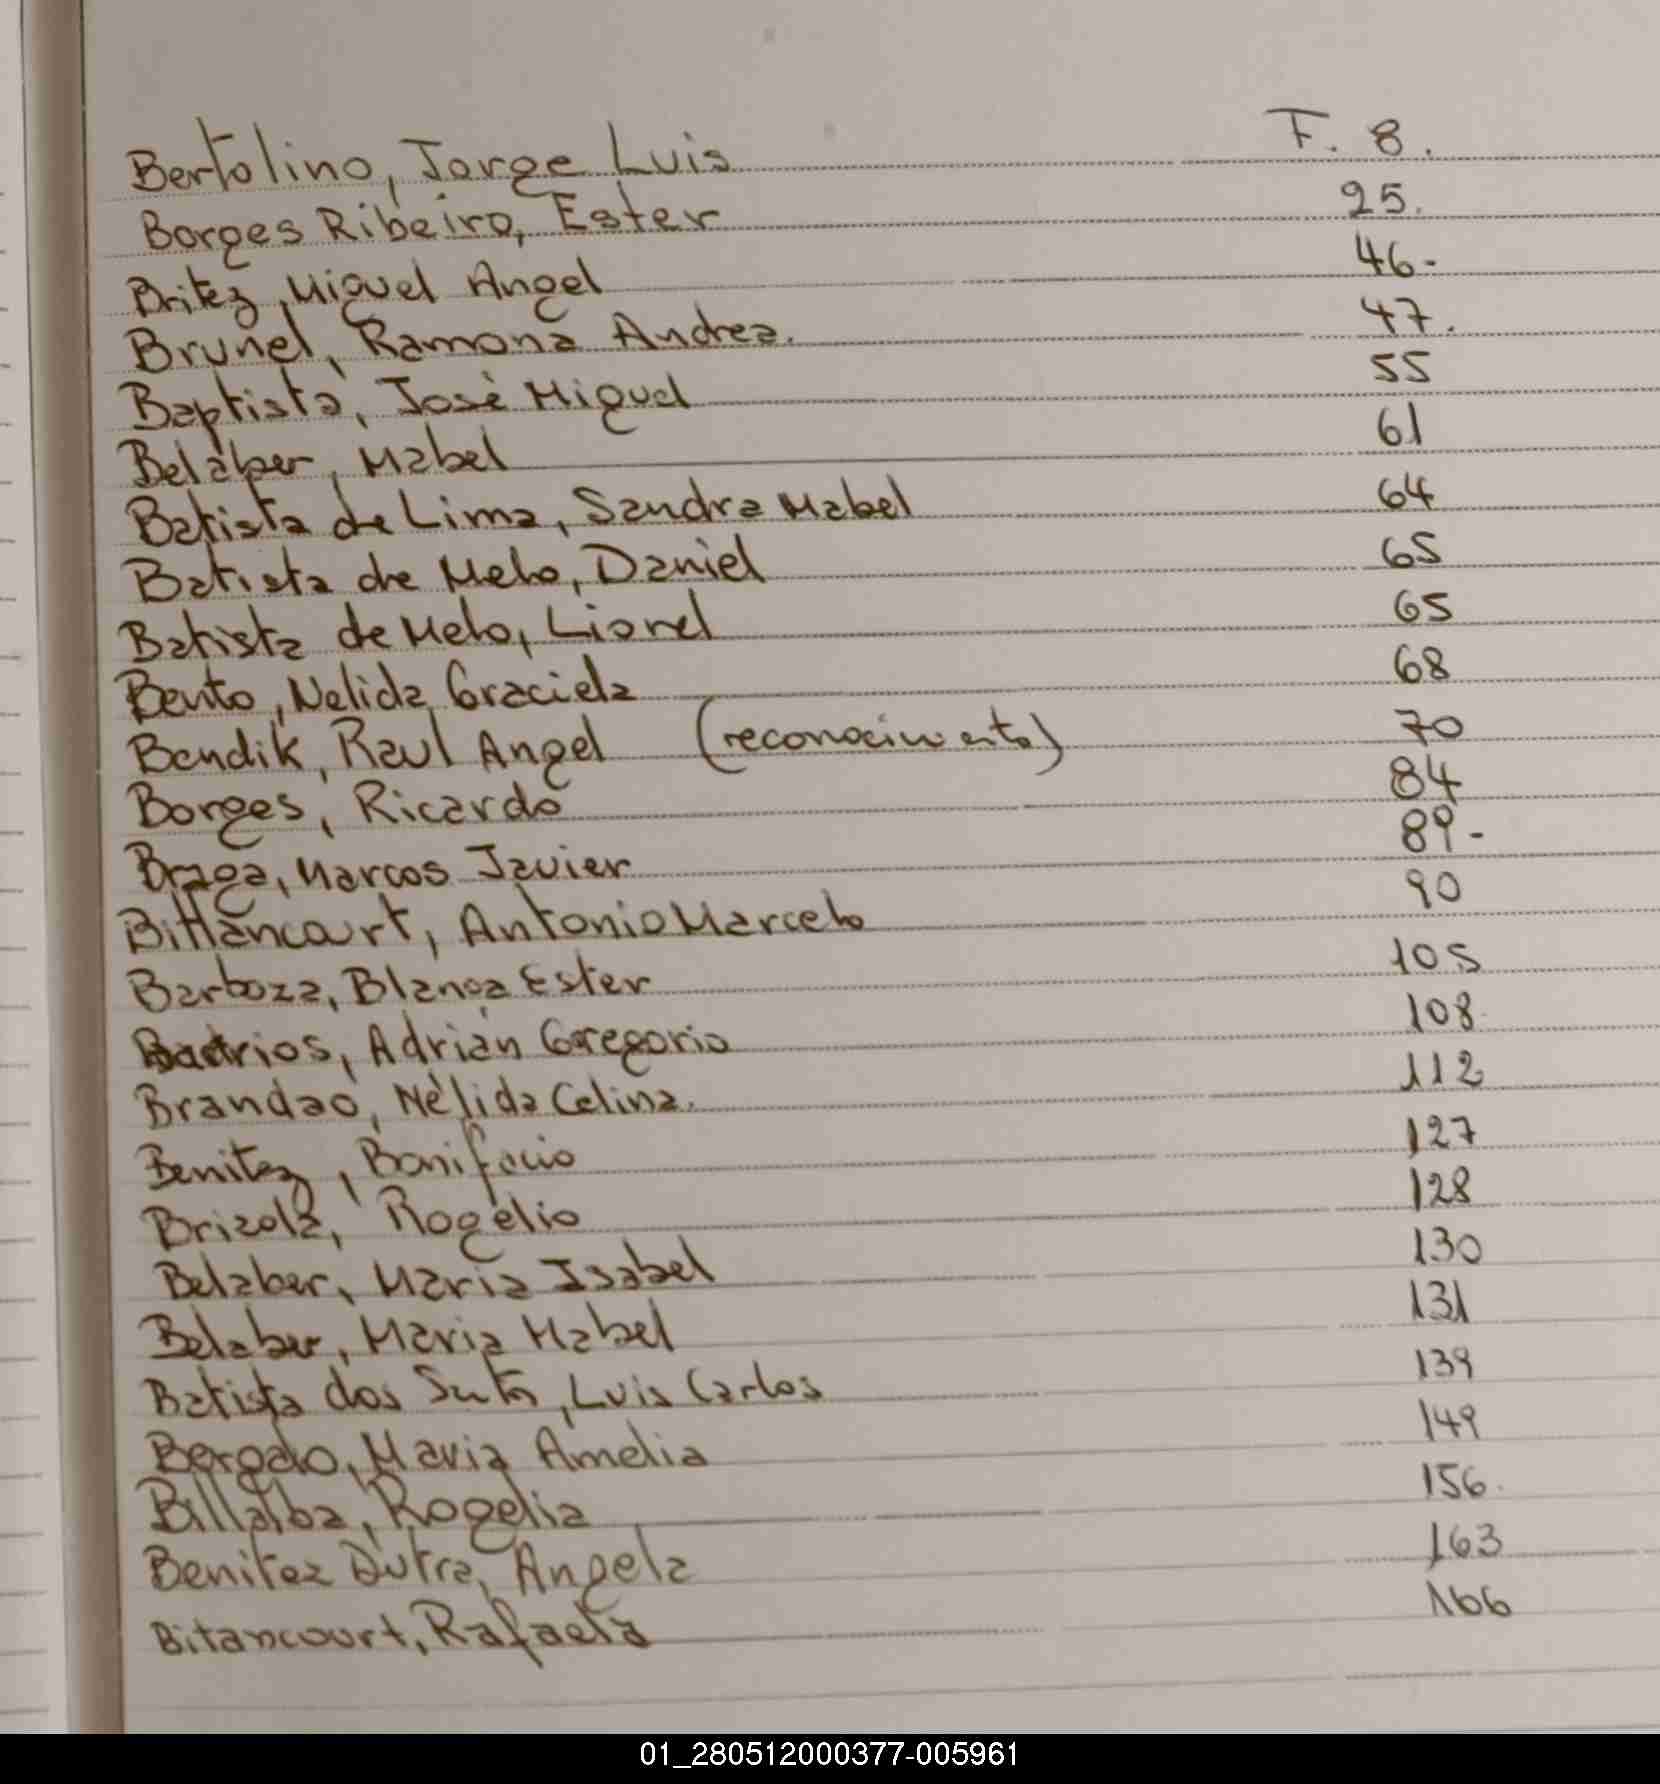 Bertolino, Jorge Luis F. 8.
Borges Ribeiro, Ester 25.
Britez, Miguel Angel 46.
Brunel, Ramona Andrea. 47.
Baptista, José Miguel 55
Belaber, Mabel 61
Batista de Lima, Sandra Mabel 64
Batista de Melo, Daniel 65
Batista de Melo, Lionel 65
Bento, Nelida Graciela 68
Bendik, Raul Angel (reconocimiento) 70
Borges, Ricardo 84
Braga, Marcos Javier 89-
Bittancourt, Antonio Marcelo 90
Barboza, Blanca Ester 105
Barrios, Adrián Gregorio 108
Brandao, Nélida Celina. 112
Benitez, Bonifacio 127
Brizola, Rogelio 128
Belaber, Maria Isabel 130
Belaber, Maria Mabel 131
Batista dos , Luis Carlos 139
Maria Amelia 149
Billalba, Rogelia 156.
Benitez Dutra, Angela 163
Bitancourt, Rafaela 166
01_280512000377-005961